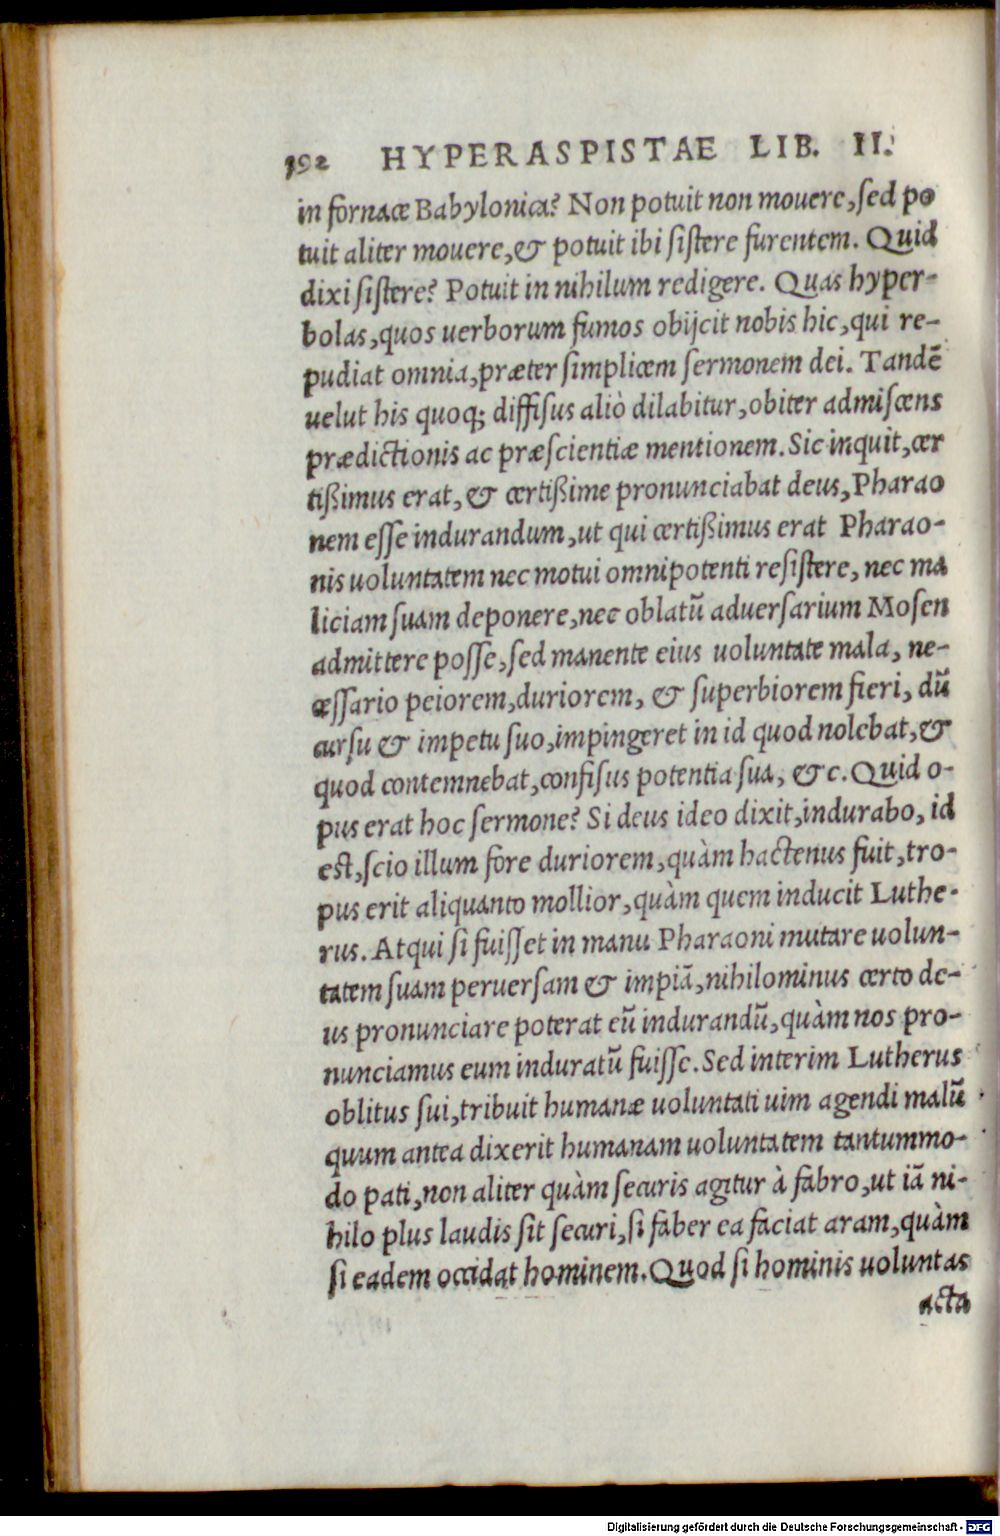 192 HYPERASPISTAE LIB. II.
in fornace Babylonica? Non potuit non mouere, sed po
tuit aliter mouere, & potuit ibi sistere furentem. Quid
dixi sistere? Potuit in nihilum redigere. Quas hyper-
bolas, quos uerborum fumos obijcit nobis hic, qui re-
pudiat omnia, præter simplicem sermonem dei. Tandē
uelut his quoq; diffisus aliò dilabitur, obiter admiscens
prædictionis ac præscientiæ mentionem. Sic inquit, cer
tißimus erat, & certißime pronunciabat deus, Pharao
nem esse indurandum, ut qui certißimus erat Pharao-
nis uoluntatem nec motui omnipotenti resistere, nec ma
liciam suam deponere, nec oblatũ aduersarium Mosen
admittere posse, sed manente eius uoluntate mala, ne-
cessario peiorem, duriorem, & superbiorem fieri, dũ
cursu & impetu suo, impingeret in id quod nolebat, &
quod contemnebat, confisus potentia sua, &c. Quid o-
pus erat hoc sermone? Si deus ideo dixit, indurabo, id
est, scio illum fore duriorem, quàm hactenus fuit, tro-
pus erit aliquanto mollior, quàm quem inducit Luthe-
rus. Atqui si fuisset in manu Pharaoni mutare uolun-
tatem suam peruersam & impiã, nihilominus certo de-
us pronunciare poterat eũ indurandũ, quàm nos pro-
nunciamus eum induratũ fuisse. Sed interim Lutherus
oblitus sui, tribuit humanæ uoluntati uim agendi malũ
quum antea dixerit humanam uoluntatem tantummo-
do pati, non aliter quàm securis agitur à fabro, ut iã ni-
hilo plus laudis sit securi, si faber ea faciat aram, quàm
si eadem occidat hominem. Quod si hominis uoluntas
acta
Digitalisierung gefördert durch die Deutsche Forschungsgemeinschaft - DFG